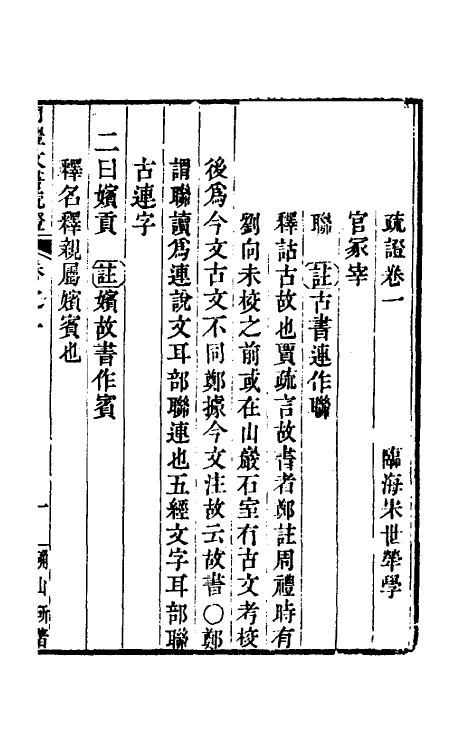 疏證卷一　臨海朱世犖學
官冢宰
聯　註古書連作聯
釋詁古故也賈疏言故書者鄭註周禮時有
劉向未校之前或在山巖石室有古文考校
後爲今文古文不同鄭據今文注故云故書〇鄭
謂聯讀爲連說文耳部聯連也五經文字耳部聯
古連字
二曰嬪貢　註嬪故書作賓
釋名釋親屬嬪賓也
一